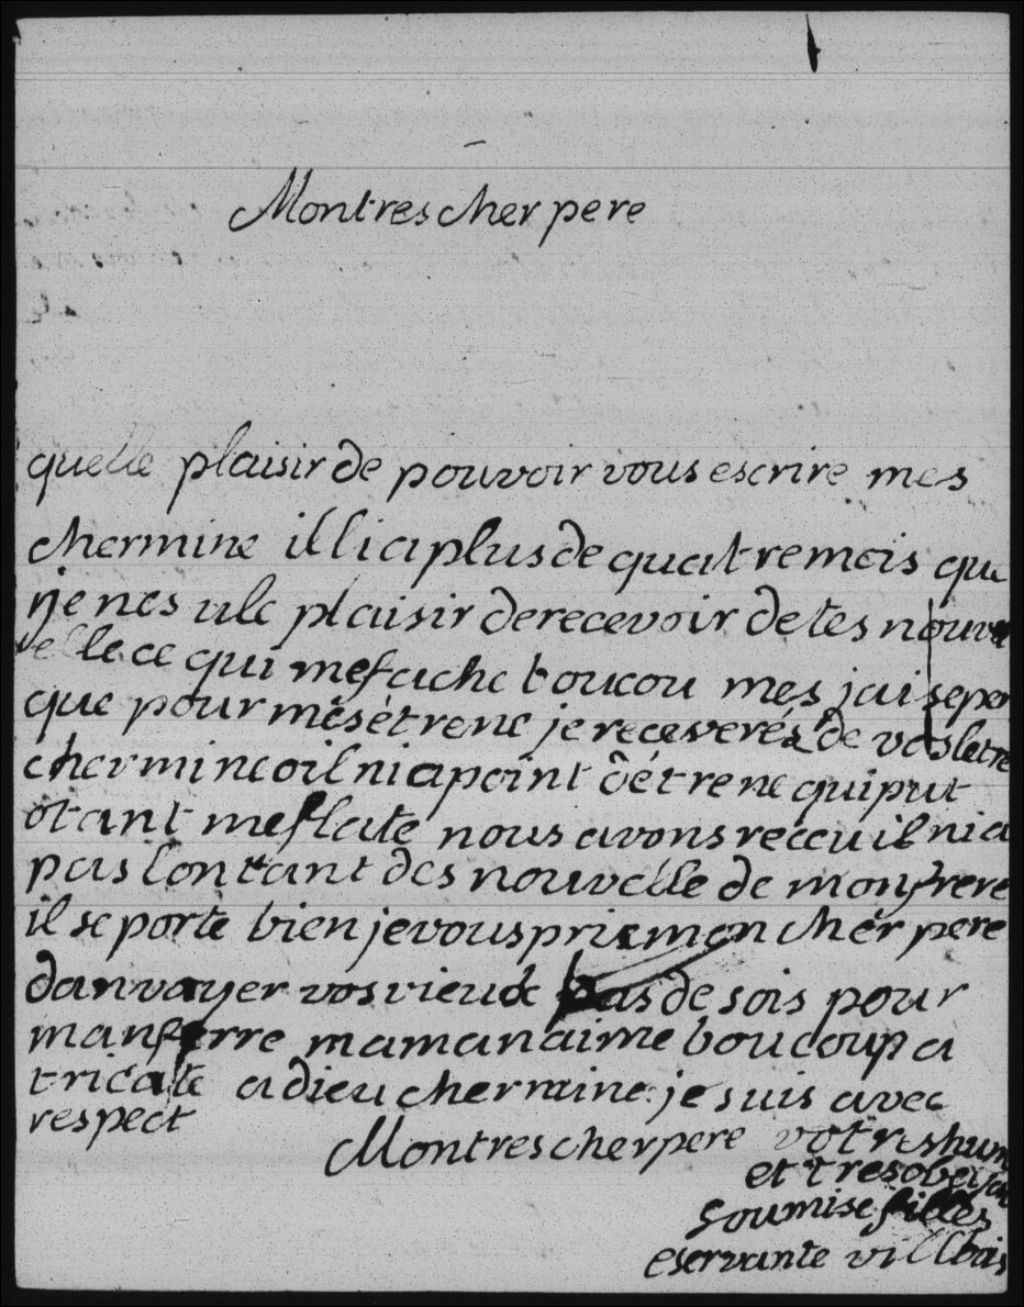 Montres cher pere
quelle plaisir de pouvoir vous escrire mes
chermine illia plus de quatre mois que
je nes ule plaisir derecevoir de tes nouve
elle ce qui mefache boucou mes jai seper
que pour mes étrene je receverés de vos letre
chermine oil nia point détrene qui put
otant meflate nous avons reccu il nia
pas lontant des nouvelle de mon frere
il se porte bien je vous prie mon cher pere
danvayer vos vieux bas de sois pour
man ferre maman aime boucoup a
tricate adieu chermine je suis avec
respect
Montres cher pere votres hum
et tres obeisa
soumise filles
eservante villbois